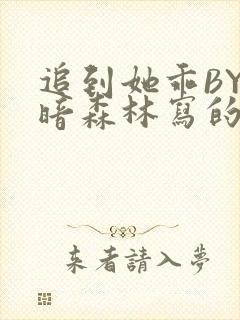 追到她乖BY
暗森林寫的
来者請入夢